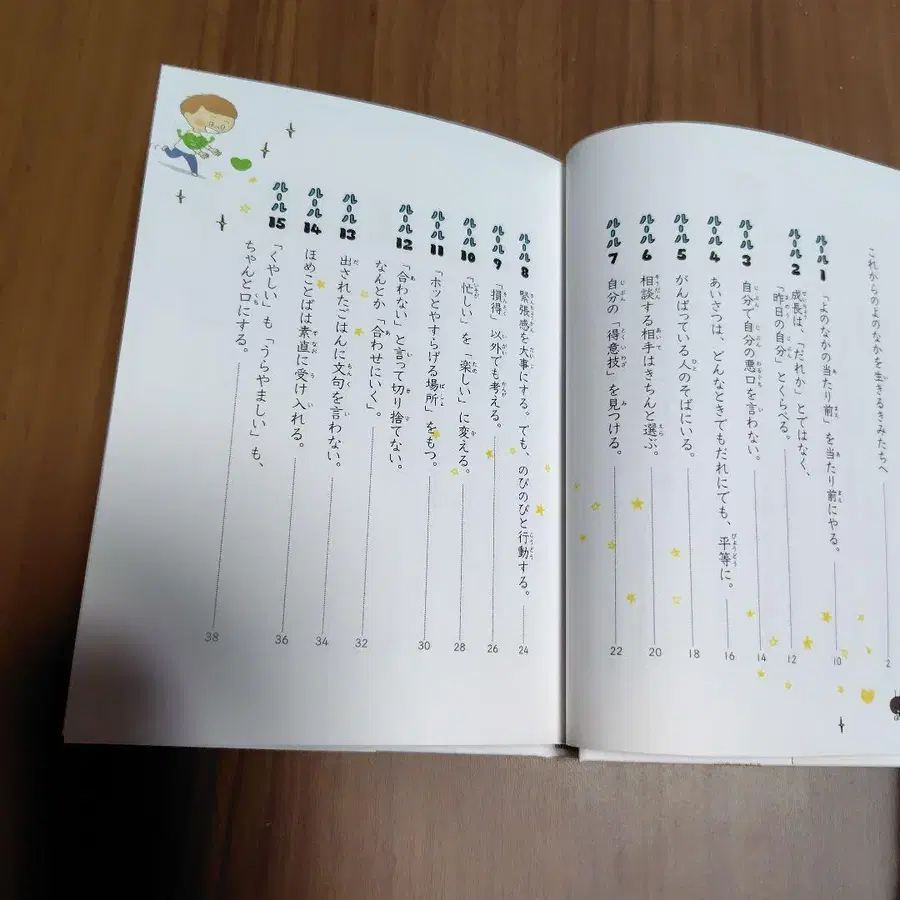 これからのよのなかを生きるきみたちへ
2
ルール1
「よのなかの当たり前」を当たり前にやる。
10
ルール2
成長は、「だれか」とではなく、
「昨日の自分」とくらべる。
12
ルール3
自分で自分の悪口を言わない。
14
ルール4
あいさつは、どんなときでもだれにでも、平等に。
16
ルール5
がんばっている人のそばにいる。
18
ルール6
相談する相手はきちんと選ぶ。
20
ルール7
自分の「得意技」を見つける。
22
ルール8
緊張感を大事にする。でも、のびのびと行動する。
24
ルール9
「損得」以外でも考える。
26
ルール10
「忙しい」を「楽しい」に変える。
28
ルール11
「ホッとやすらげる場所」をもつ。
30
ルール12
「合わない」と言って切り捨てない。
なんとか「合わせにいく」。
32
ルール13
出されたごはんに文句を言わない。
34
ルール14
ほめことばは素直に受け入れる。
36
ルール15
「くやしい」も「うらやましい」も、
ちゃんと口にする。
38